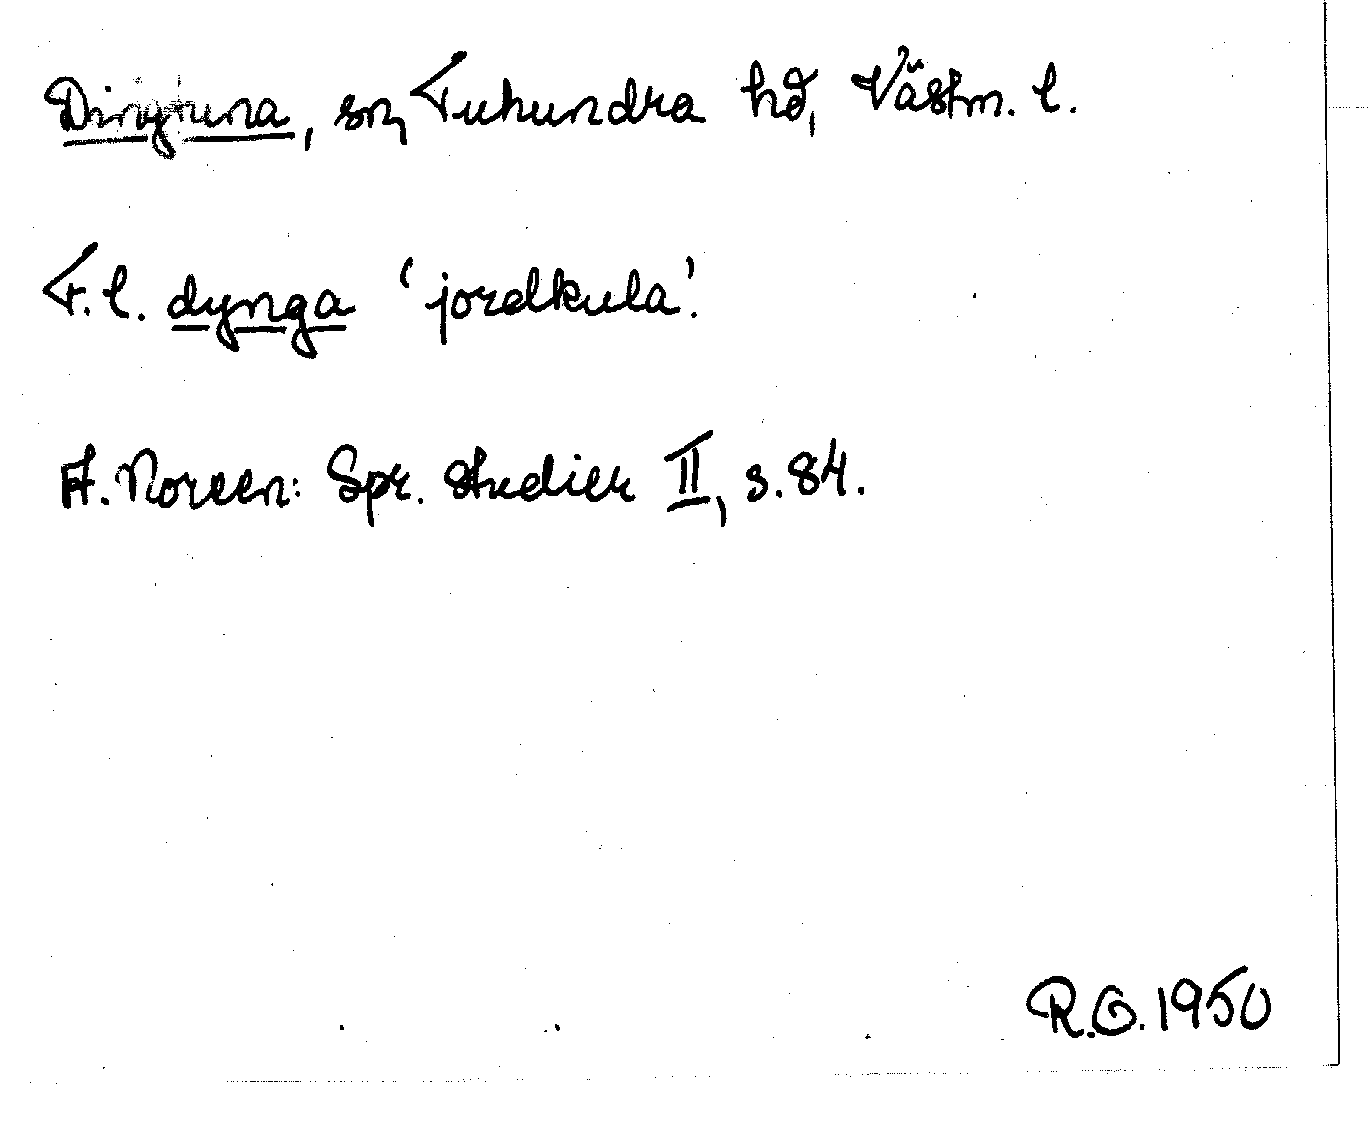 Dingtuna, sn, Tuhundra hd, Västm. l.
T. l. dynga 'jordkula'.
A. Noreen: Spr. studier II, s. 84.
R.O. 1950